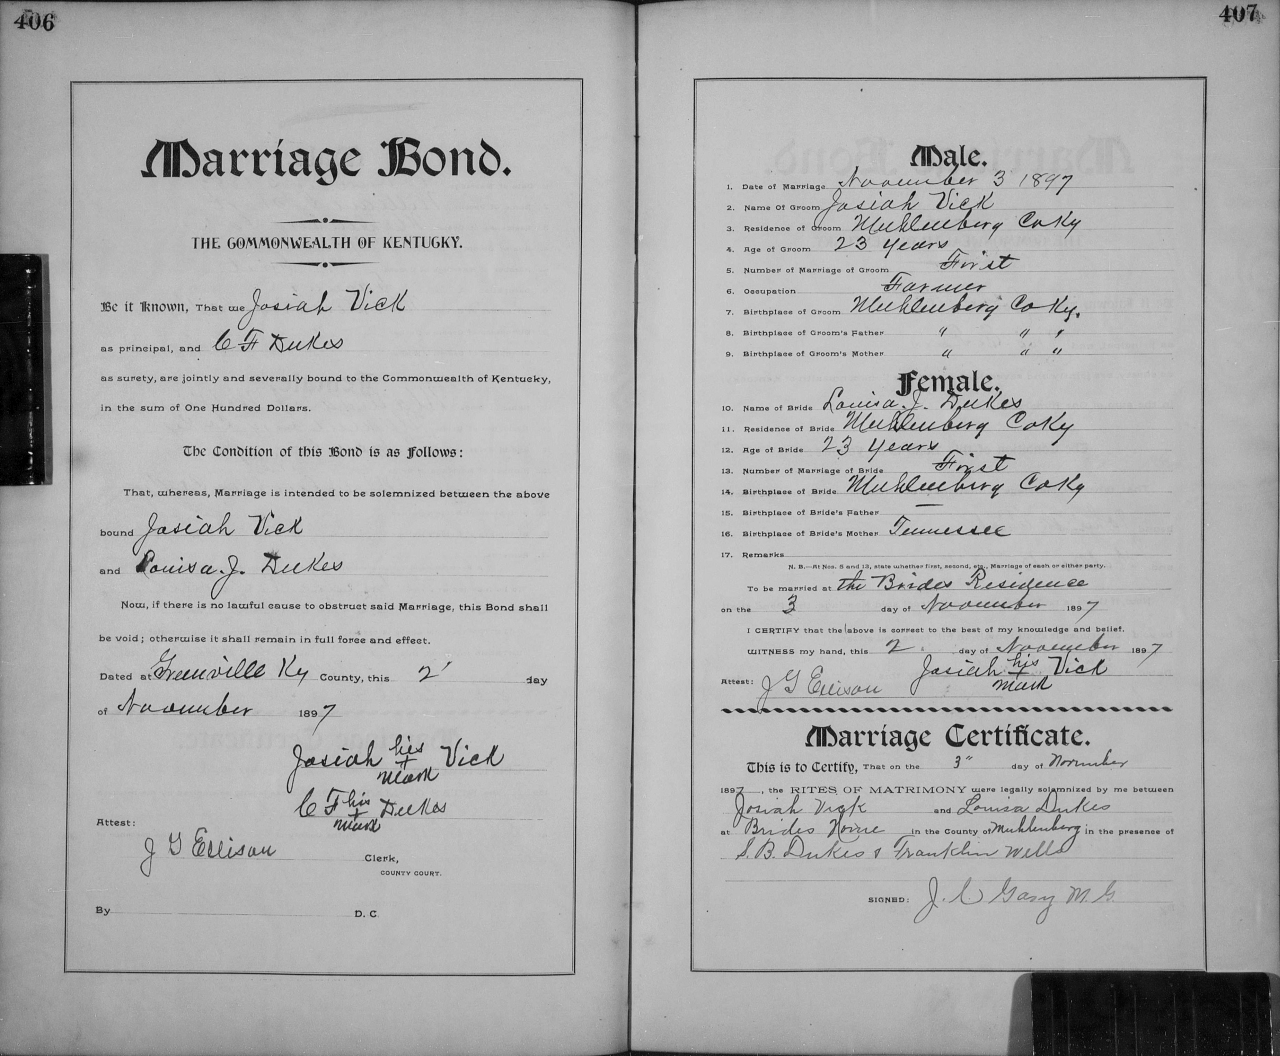 406
Marriage Bond.
THE COMMONWEALTH OF KENTUCKY.
Be it Known, That we Josiah Vick
as principal, and C F Dukes
as surety, are jointly and severally bound to the Commonwealth of Kentucky,
in the sum of One Hundred Dollars.
The Condition of this Bond is as Follows:
That, whereas, Marriage is intended to be solemnized between the above
bound Josiah Vick
and Louisa. J. Dukes
Now, if there is no lawful cause to obstruct said Marriage, this Bond shall
be void; otherwise it shall remain in full force and effect.
Dated at Greenville Ky County, this 2' day
of November 1897
Josiah his + mark Vick
C F his + mark Dukes
Attest:
J G Ellison Clerk,
COUNTY COURT.
By D. C.
407
Male.
1. Date of Marriage November 3 1897
2. Name Of Groom Josiah Vick
3. Residence of Groom Muhlenberg Co Ky
4. Age of Groom 23 years
5. Number of Marriage of Groom First
6. Occupation Farmer
7. Birthplace of Groom Muhlenberg Co Ky.
8. Birthplace of Groom's Father " " "
9. Birthplace of Groom's Mother " " "
Female.
10. Name of Bride Louisa. J. Dukes
11. Residence of Bride Muhlenberg Co Ky
12. Age of Bride 23 years
13. Number of Marriage of Bride First
14. Birthplace of Bride Muhlenberg Co Ky
15. Birthplace of Bride's Father —
16. Birthplace of Bride's Mother Tennessee
17. Remarks
N. B.—At Nos. 5 and 13, state whether first, second, etc., Marriage of each or either party.
To be married at the Brides Residence
on the 3 day of November 1897
I CERTIFY that the above is correct to the best of my knowledge and belief.
WITNESS my hand, this 2. day of November 1897
Josiah his + mark Vick
Attest: J G Ellison
Marriage Certificate.
This is to Certify, That on the 3" day of November
1897, the RITES OF MATRIMONY were legally solemnized by me between
Josiah Vick and Louisa Dukes
at Brides Home in the County of Muhlenberg in the presence of
S. B. Dukes & Franklin Wells
SIGNED: J. C Gary M. G.